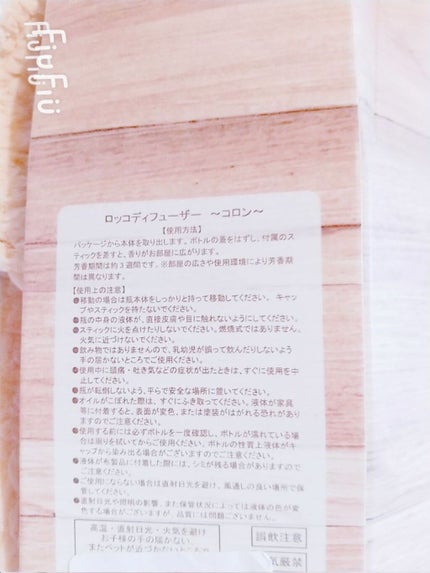 ロッコディフューザー ～コロン～
【使用方法】
パッケージから本体を取り出します。ボトルの蓋をはずし、付属のス
ティックを差すと、香りがお部屋に広がります。
芳香期間は約3週間です。※部屋の広さや使用環境により芳香期
間は異なります。
【使用上の注意】
●移動の場合は瓶本体をしっかりと持って移動してください。 キャッ
プやスティックを持たないでください。
●瓶の中身の液体が、直接皮膚や目に触れないようにしてください。
●スティックに火を点けたりしないでください。燃焼式ではありません。
火気に近づけないでください。
●飲み物ではありませんので、乳幼児が誤って飲んだりしないよう
手の届かないところでご使用ください。
●使用中に頭痛・吐き気などの症状が出たときは、すぐに使用を中
止してください。
●瓶が転倒しないよう、平らで安全な場所に置いてください。
●オイルがこぼれた際は、すぐにふき取ってください。液体が家具
等に付着すると、表面が変色、または塗装がはがれる恐れがあり
ますのでご注意ください。
●使用する前には必ずボトルを一度確認し、ボトルが濡れている場
合は周りを拭いてからご使用ください。ボトルの性質上液体がキ
ャップから染み出る場合がございますのでご注意ください。
●液体が布製品に付着した際には、シミが残る場合がありますので
ご注意ください。
●ご使用にならない場合は直射日光を避け、風通しの良い場所で保
管してください。
●直射日光や照明の影響、また保管状況によっては液体の色が変
色する場合がございますが、品質には問題ございません。
高温・直射日光・火気を避け
お子様の手の届かない、
またペットが近づかない
誤飲注意
火気厳禁